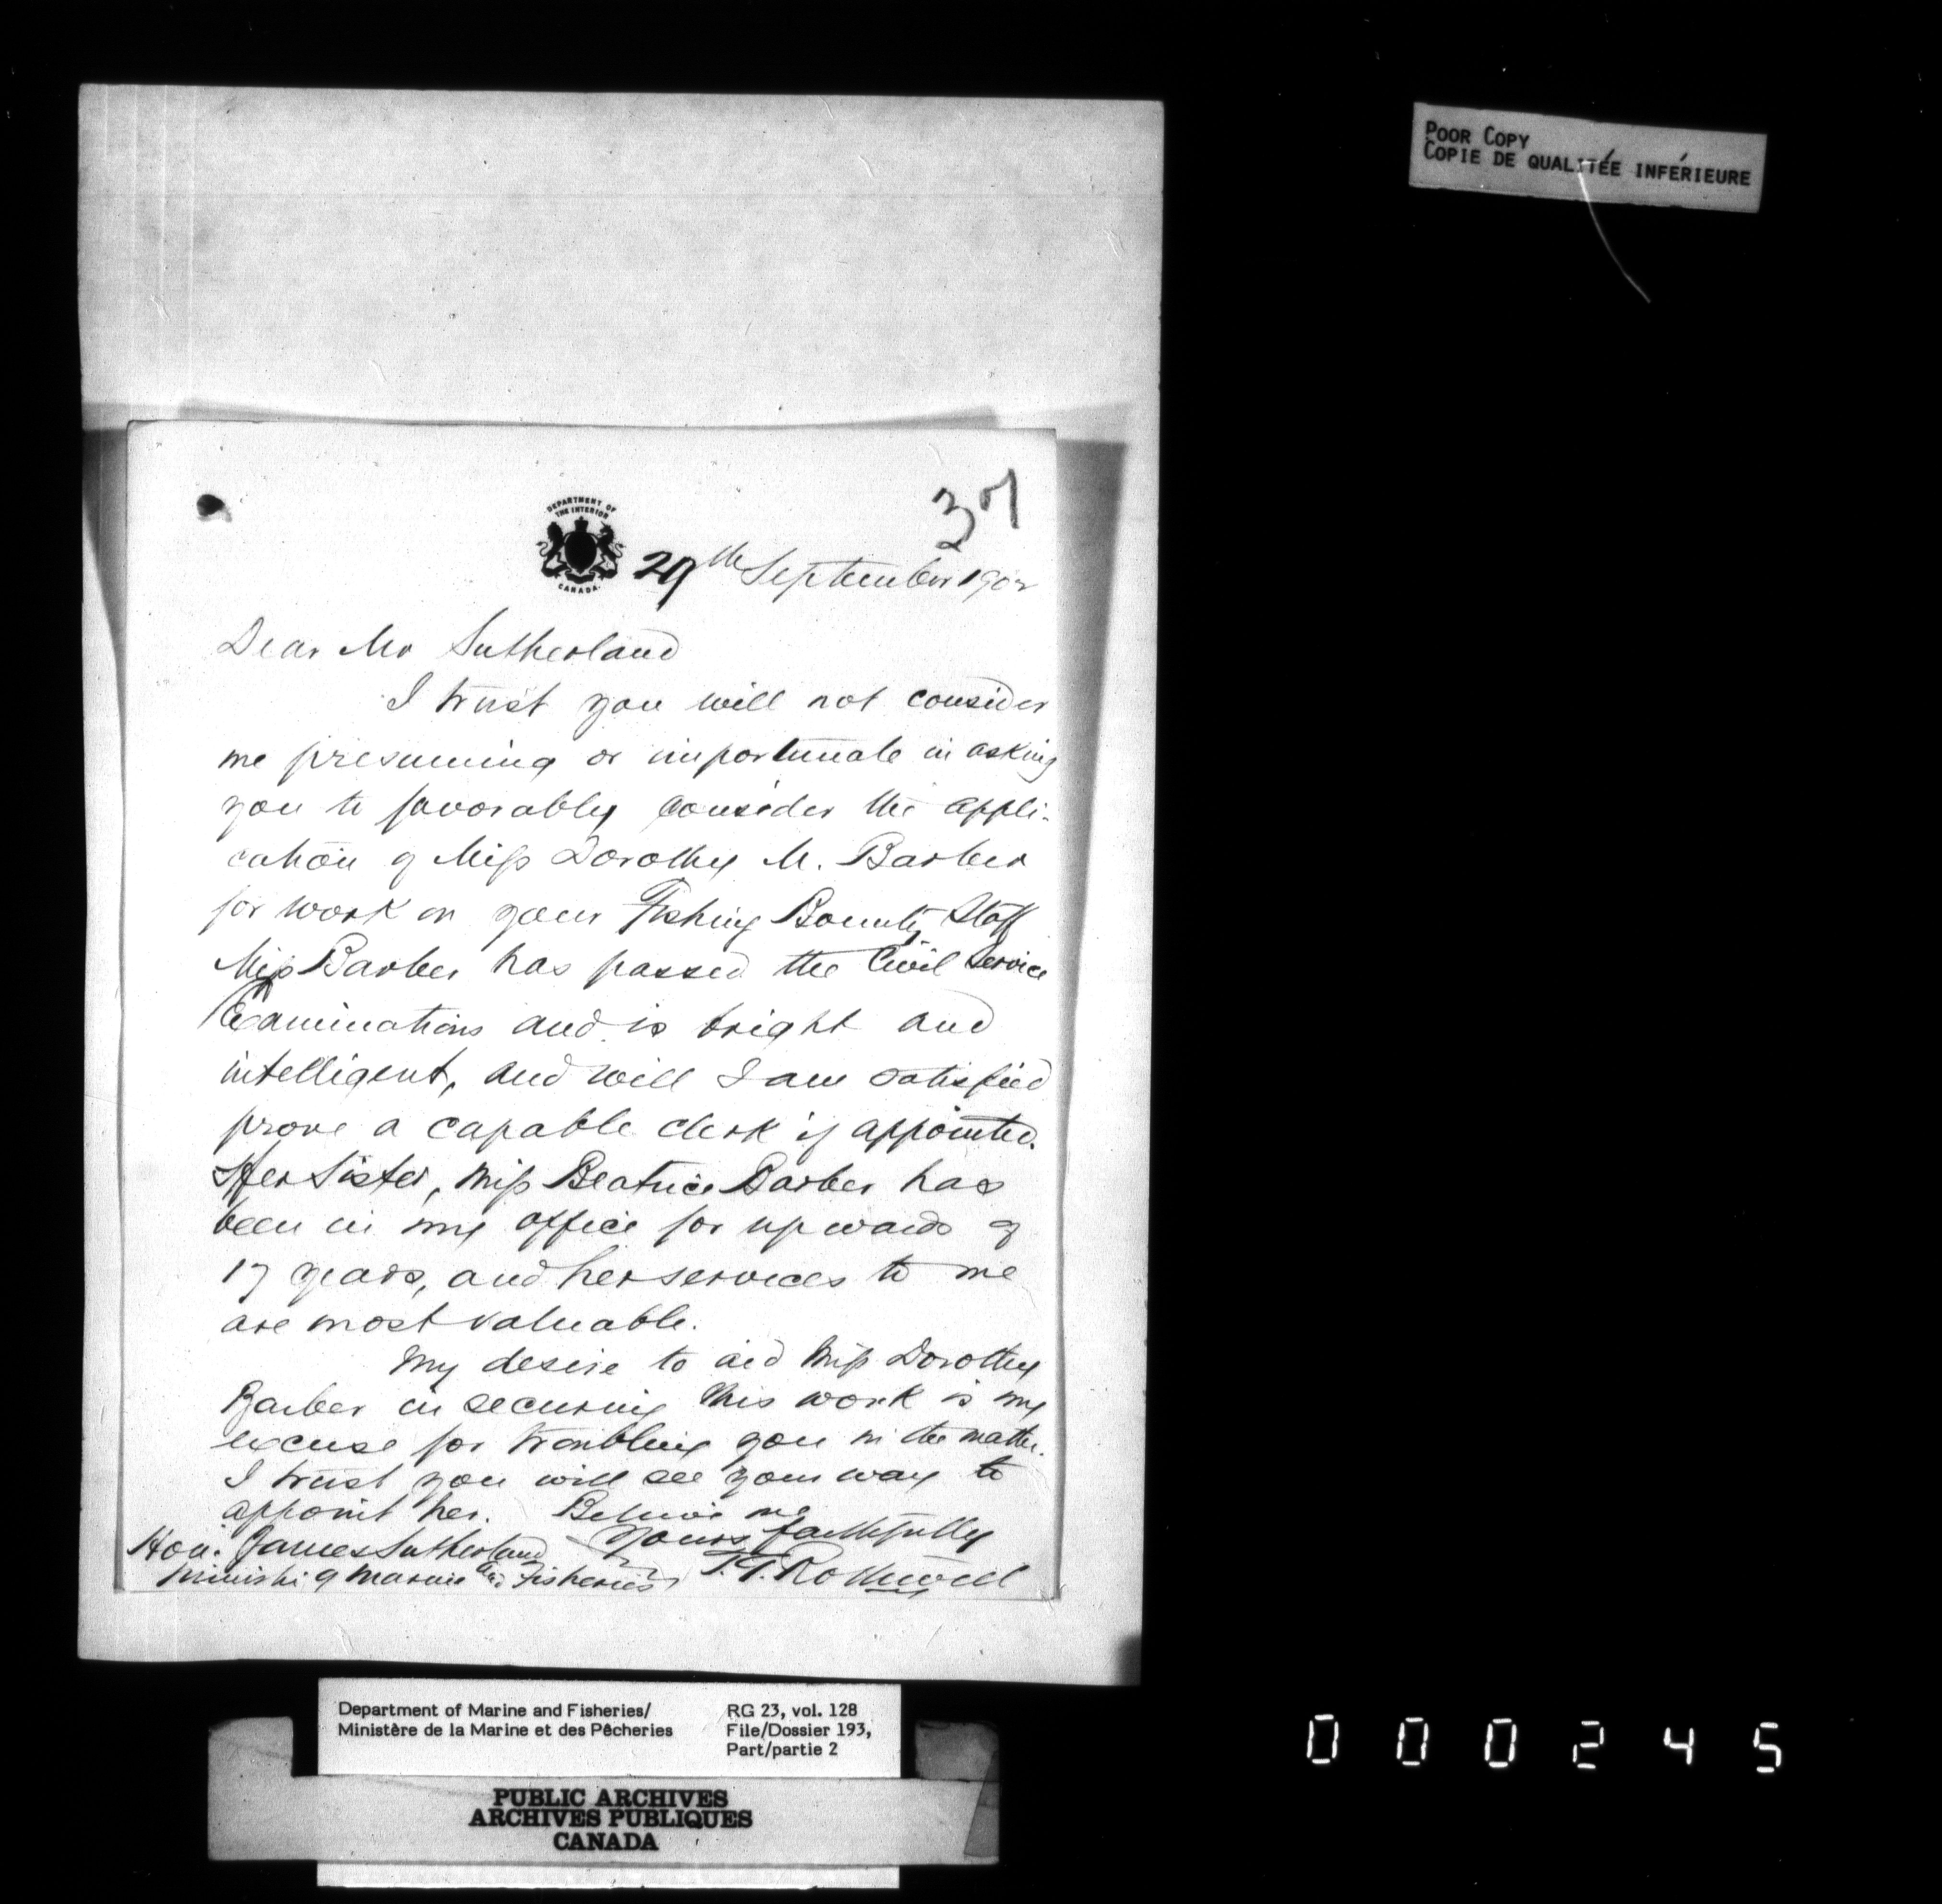 POOR COPY
COPIE DE QUALITÉE INFÉRIEURE
37
DEPARTMENT OF
THE INTERIOR
CANADA.
29th September 1902
Dear Mr Sutherland
I trust you will not consider
me presuming or importunate in asking
you to favorably consider the appli-
cation of Miss Dorothy M. Barber
for work on your Fishing Bounty Staff
Miss Barber has passed the Civil Service
Examinations and is bright and
intelligent, and will I am satisfied
prove a capable clerk if appointed.
Her Sister, Miss Beatrice Barber has
been in my office for upwards of
17 years, and her services to me
are most valuable.
My desire to aid Miss Dorothy
Barber in securing this work is my
excuse for troubling you in the matter.
I trust you will see your way to
appoint her. Believe me
Yours faithfully
T.G. Rothwell
Hon: James Sutherland
Minister of Marine and Fisheries
Department of Marine and Fisheries/
Ministère de la Marine et des Pêcheries
RG 23, vol. 128
File/Dossier 193,
Part/partie 2
PUBLIC ARCHIVES
ARCHIVES PUBLIQUES
CANADA
000245